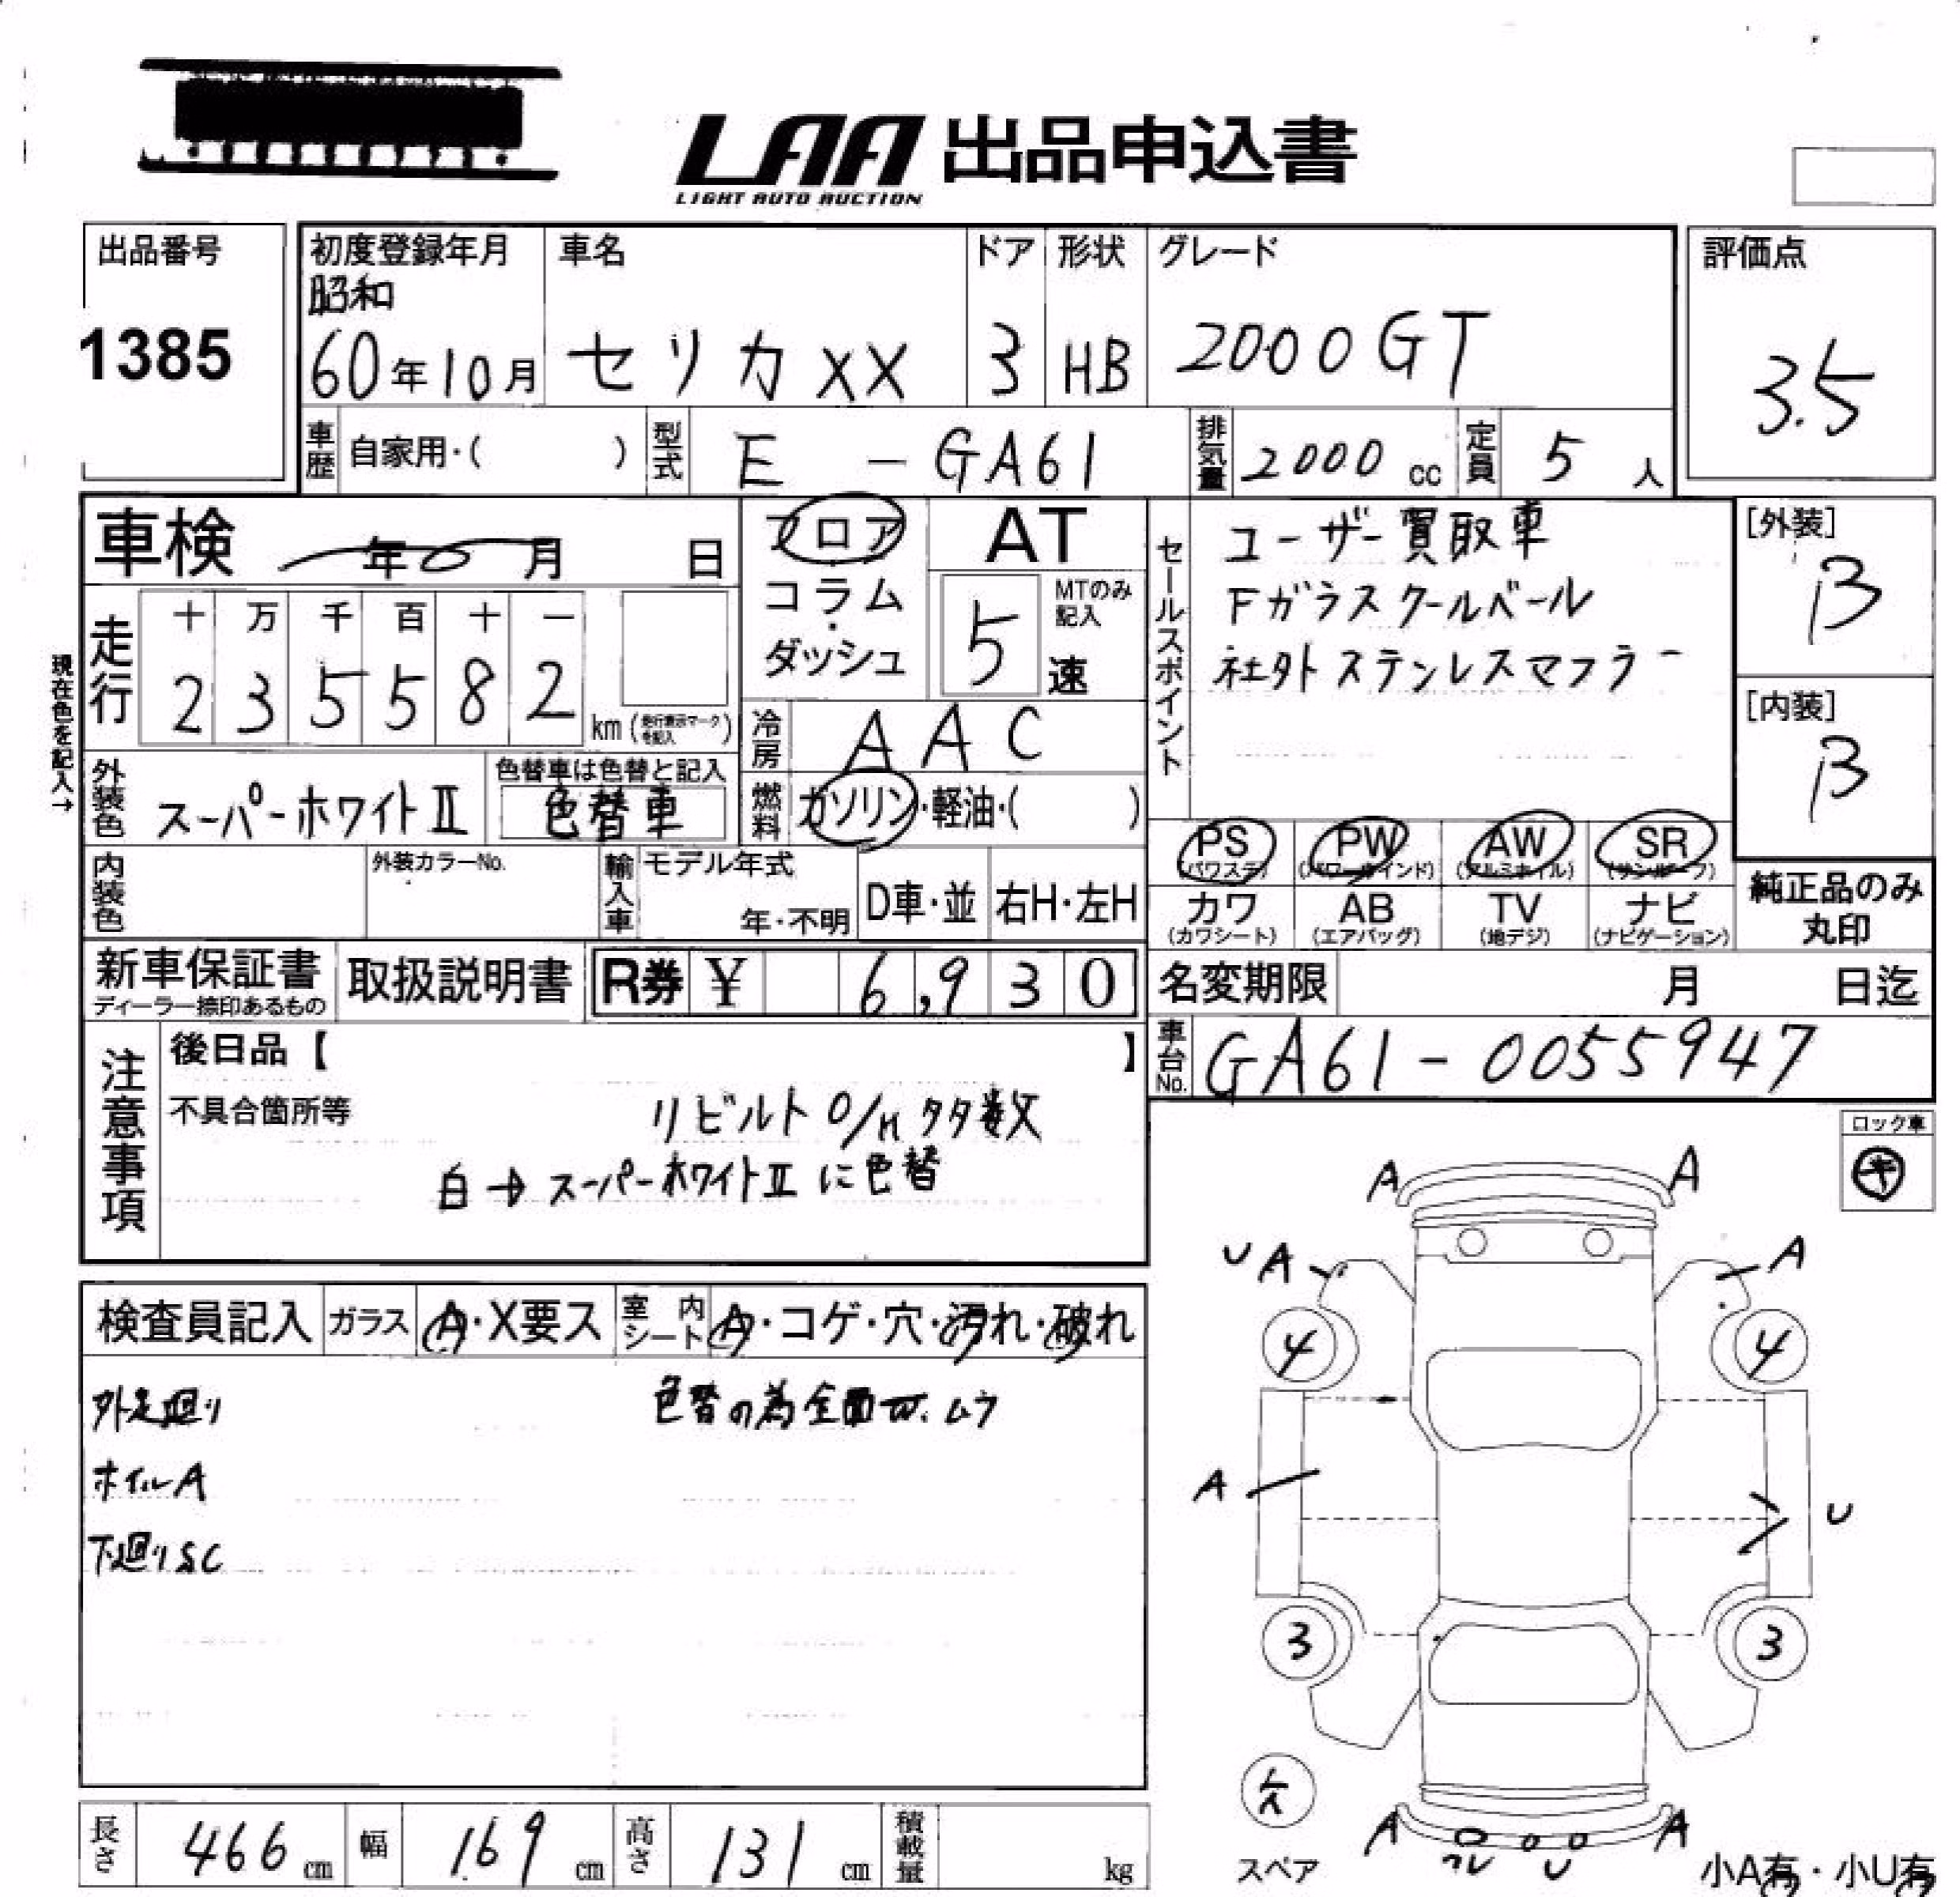 LAA 出品申込書
LIGHT AUTO AUCTION
出品番号
1385
初度登録年月
昭和
60年10月
車名
セリカXX
ドア
3
形状
HB
グレード
2000GT
評価点
3.5
車歴 自家用・( )
型式 E - GA61
排気量 2000 cc
定員 5 人
車検 年 月 日
フロア
コラム
・
ダッシュ
AT
MTのみ記入
5速
セールスポイント
ユーザー買取車
Fガラスクールベール
社外ステンレスマフラー
[外装]
B
[内装]
B
現在色を記入→
走行
十 万 千 百 十 一
2 3 5 5 8 2
km (走行表示マークを記入)
冷房 AAC
燃料 ガソリン・軽油・( )
外装色 スーパーホワイトⅡ
色替車は色替と記入
色替車
内装色
外装カラーNo.
輸入車 モデル年式
年・不明
D車・並 右H・左H
PS (パワステ)
PW (パワーウインド)
AW (アルミホイル)
SR (サンルーフ)
カワ (カワシート)
AB (エアバッグ)
TV (地デジ)
ナビ (ナビゲーション)
純正品のみ
丸印
新車保証書
ディーラー捺印あるもの
取扱説明書
R券 ¥ 6,930
名変期限 月 日迄
車台No. GA61-0055947
注意事項
後日品【 】
不具合箇所等
リビルト O/H 多数
白→スーパーホワイトⅡに色替
ロック車
キ
検査員記入
ガラス A・X要ス
室内シート A・コゲ・穴・汚れ・破れ
外足廻り
色替の為全面W.ムラ
ホイルA
下廻りSC
A A
U A A
4 4
A U
3 3
A A
U
スペア
小A有・小U有
長さ 466 cm
幅 169 cm
高さ 131 cm
積載量 kg